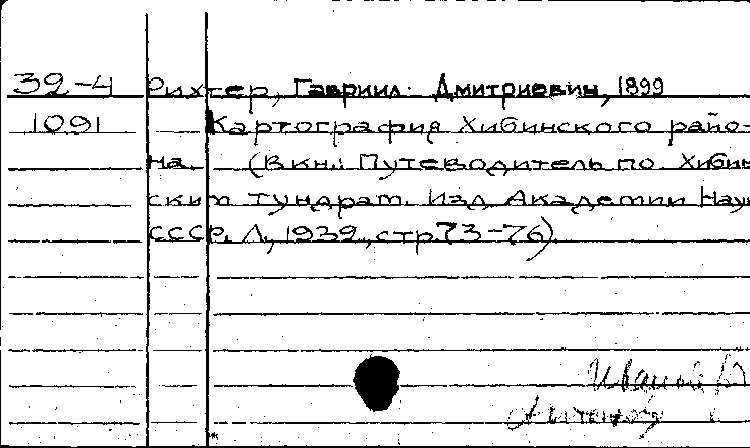 32-4 Рихтер, Гавриил Дмитриевич, 1899
1091 Картография Хибинского райо-
на. (В кн.: Путеводитель по Хибин
ским тундрам. Изд. Академии Наук
СССР. Л., 1939, стр. 73-76).